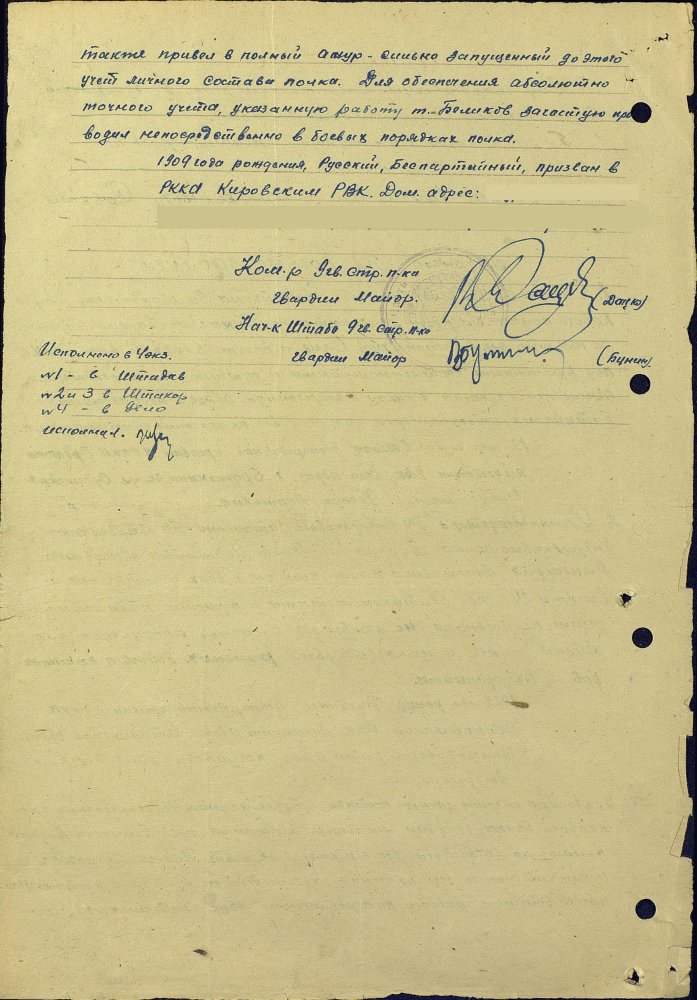 также привел в полный ажур - сильно запущенный до этого
учет личного состава полка. Для обеспечения абсолютно
точного учета, указанную работу т. Беликов зачастую про
водил непосредственно в боевых порядках полка.
1909 года рождения, Русский, Беспартийный, призван в
РККА Кировским РВК. Дом. адрес:
Ком-р 9 гв. стр. п-ка
гвардии Майор. (Дацко)
Нач-к Штаба 9 гв. стр. п-ка
гвардии Майор (Бунин).
Исполнено в 4 экз.
№1 - в Штадив
№2 и 3 в Штакор
№4 - в дело
исполнил.